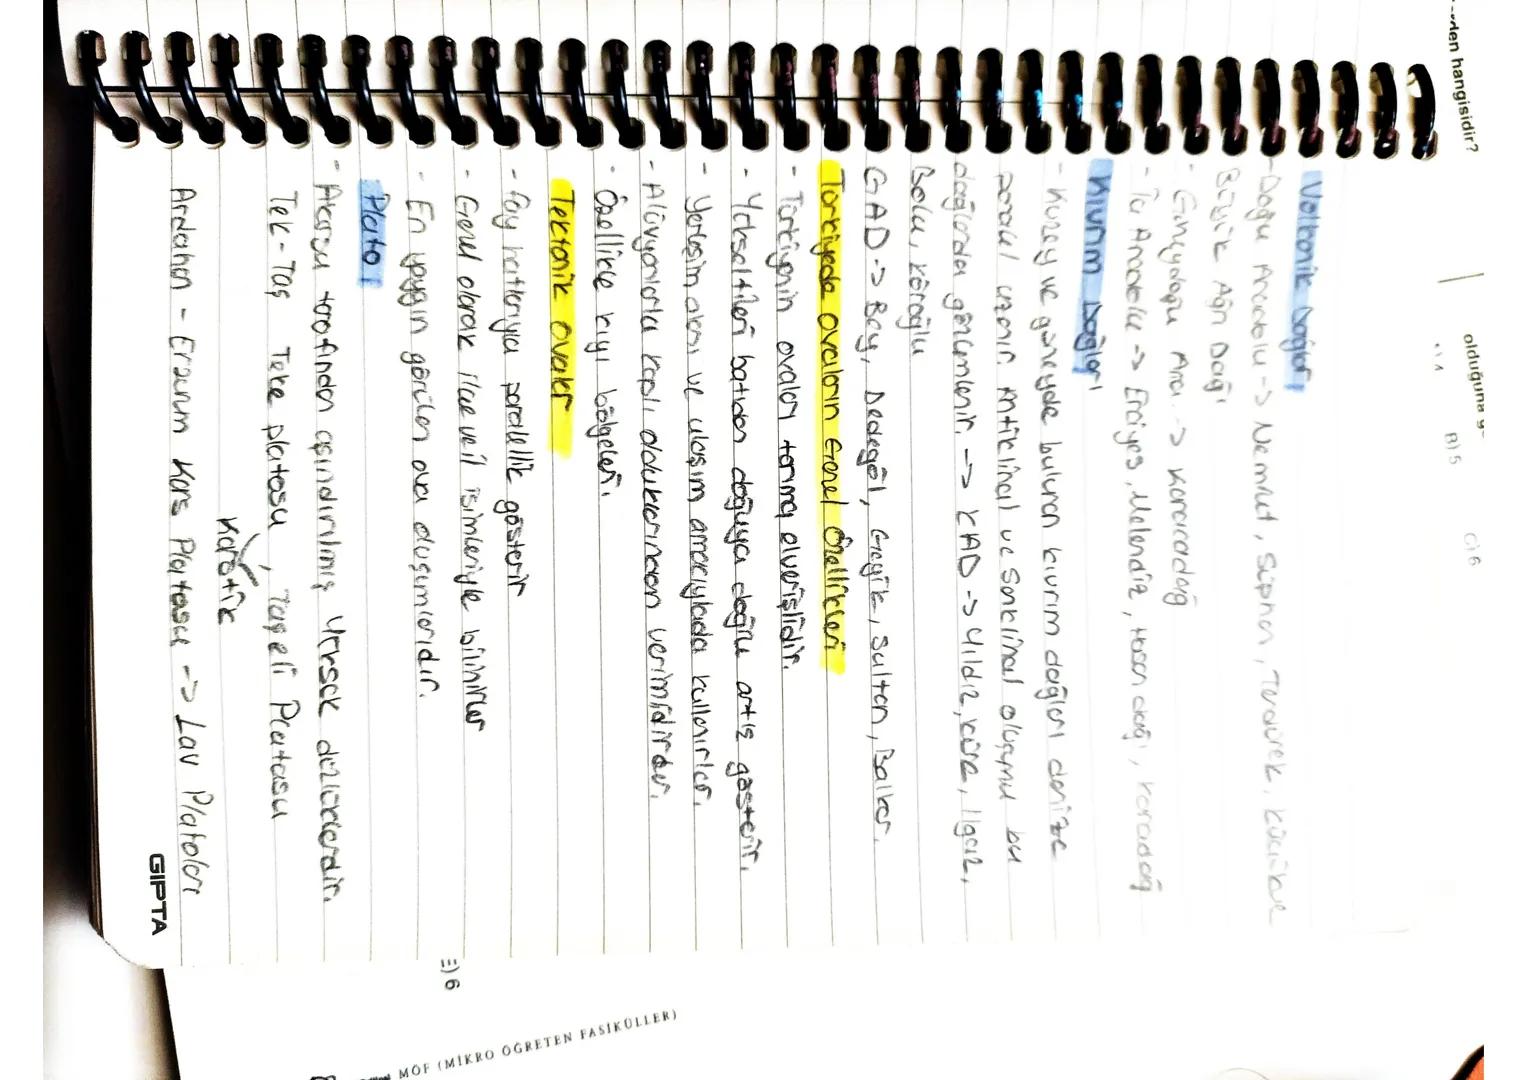 Volkanik Dağlar
- Doğu Anadolu -> Nemrut, Süphan, Tendürek, küçük ve
Büyük Ağrı Dağı
- Güneydoğu Ana. -> Karacadağ
- İç Anadolu -> Erciyes, Melendiz, Hasan dağı, Karadağ
Kıvrım Dağları
- Kuzey ve güneyde bulunan kıvrım dağları denize
paralel uzanır. Antiklinal ve Senklinal oluşumu bu
dağlarda gözlemlenir. -> KAD -> Yıldız, Küre, Ilgaz,
Bolu, Köroğlu
GAD -> Bey, Dedegöl, Geyik, Sultan, Bolkar.
Türkiyede ovaların Genel Özellikleri
- Türkiyenin ovaları tarıma elverişlidir.
- Yükseltileri batıdan doğuya doğru artış gösterir.
- Yerleşim alanı ve ulaşım amacıylada kullanırlar.
- Alüvyonlarla kaplı olduklarından verimlidirler.
· Özellikle kıyı bölgeleri.
Tektonik ovalar
- Fay hatlarıyla paralellik gösterir
- Genel olarak ilçe ve il isimleriyle bilinirler
- En yaygın görülen ova oluşumlarıdır.
Plato
- Akarsu tarafından aşındırılmış Yüksek düzlüklerdir.
Tek-Taş Teke platosu, Taşeli Platosu
Karstik
Ardahan - Erzurum Kars Platosu -> Lav Platoları
GIPTA
erden hangisidir?
olduğuna g
B) 5
C) 6
E) 6
MÖF (MİKRO ÖĞRETEN FASİKÜLLER)